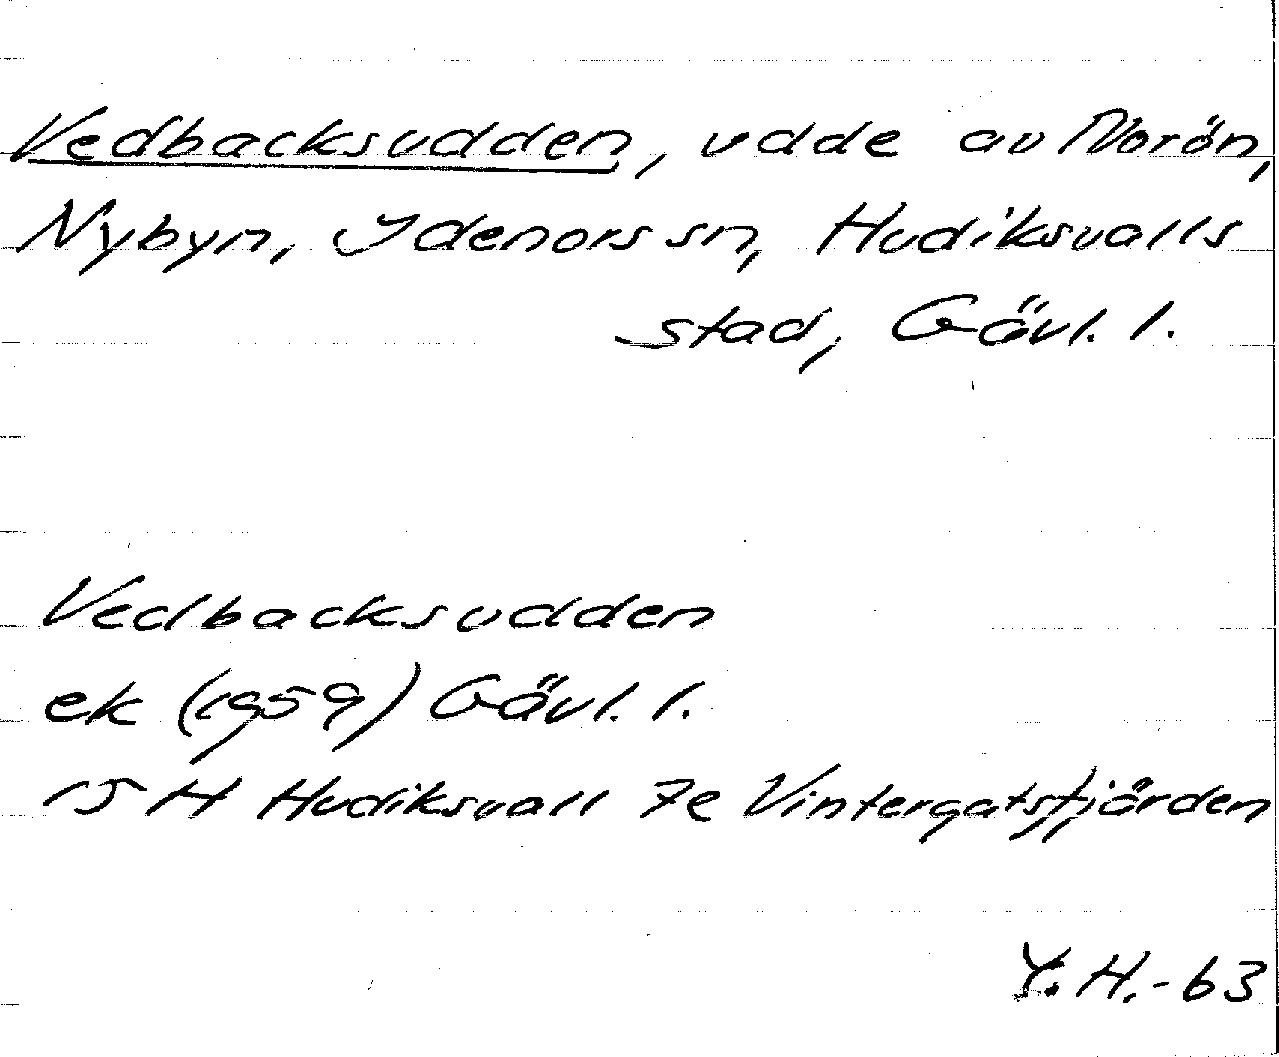 Vedbacksudden, udde av Norön,
Nybyn, Idenors sn, Hudiksvalls
stad, Gävl. l.
Vedbacksudden
ek (1959) Gävl. l.
15 H Hudiksvall 7e Vintergatsfjärden
Y.H.-63